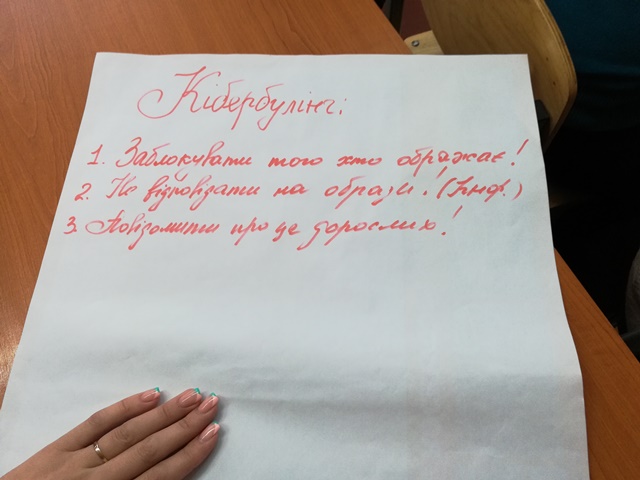 Кібербулінг:
1. Заблокувати того хто ображає!
2. Не відповідати на образи! (Інф.)
3. Повідомити про це дорослих!